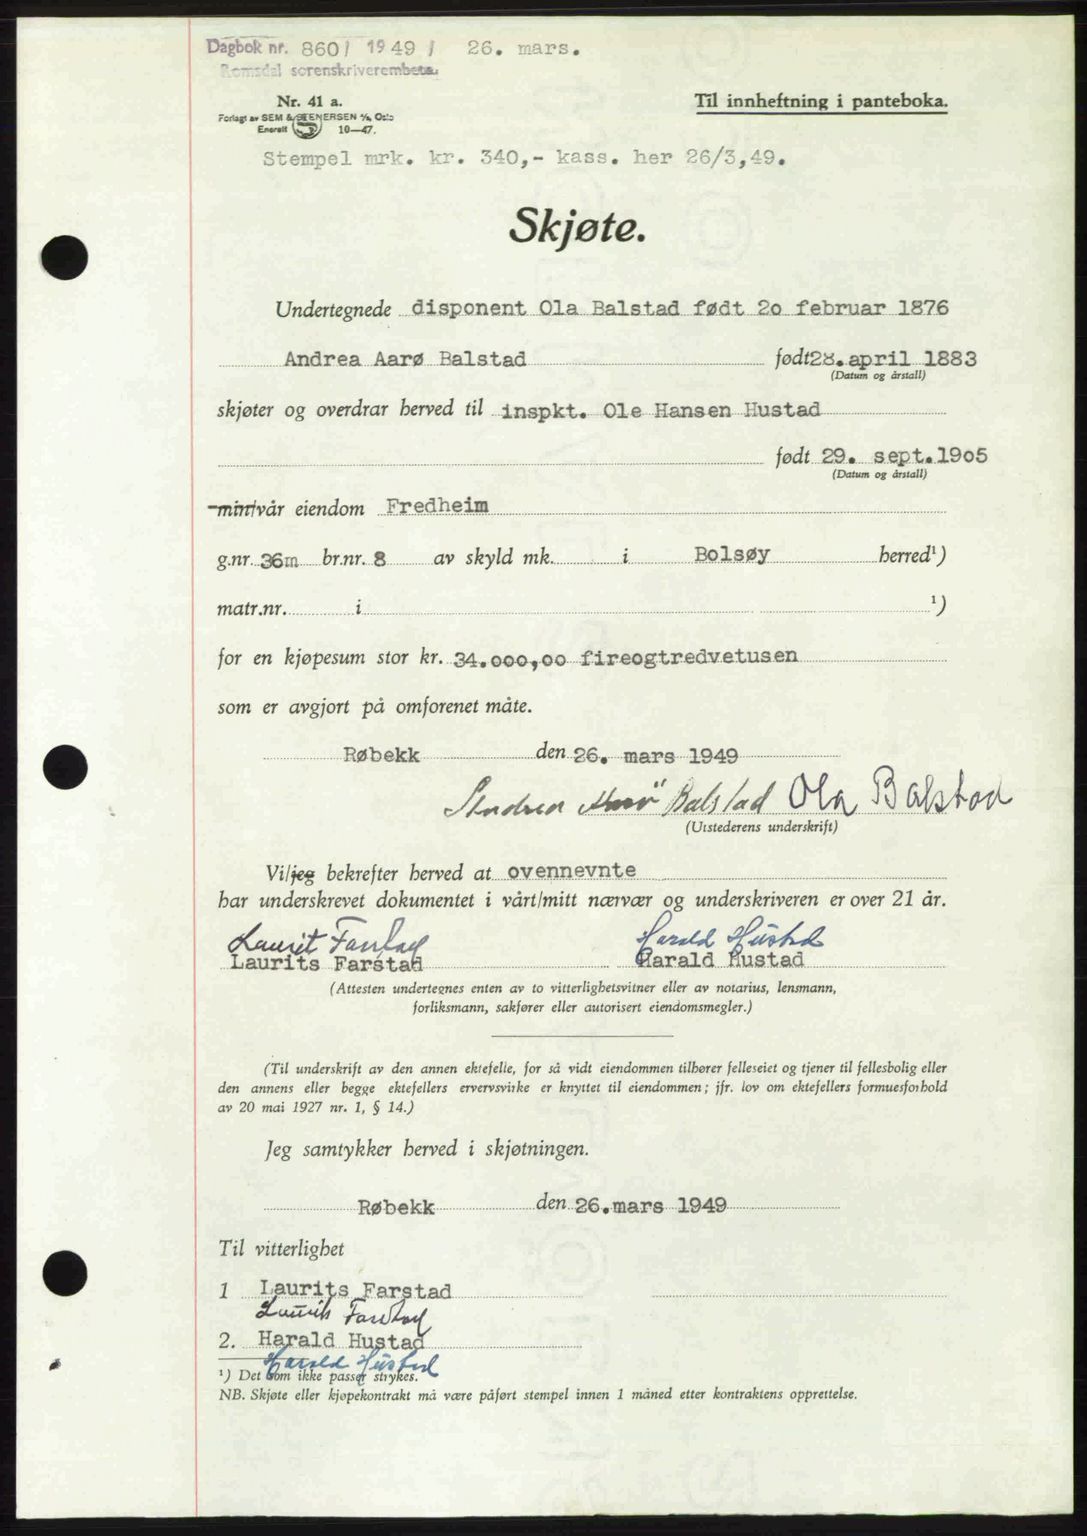 Dagbok nr. 860/ 1949/ 26. mars.
Romsdal sorenskriverembete.
Nr. 41 a.
Til innheftning i panteboka.
Forlagt av SEM & STENERSEN A/S, Oslo
Enerett 10—47.
Stempel mrk. kr. 340,- kass. her 26/3,49.
Skjøte.
Undertegnede disponent Ola Balstad født 2o februar 1876
Andrea Aarø Balstad født 28. april 1883
(Datum og årstall)
skjøter og overdrar herved til inspkt. Ole Hansen Hustad
født 29. sept. 19o5
(Datum og årstall)
min/vår eiendom Fredheim
g.nr. 36m br.nr. 8 av skyld mk. i Bolsøy herred¹)
matr.nr. i ¹)
for en kjøpesum stor kr. 34.ooo,oo fireogtredvetusen
som er avgjort på omforenet måte.
Røbekk den 26. mars 1949
Andrea Aarö Balstad Ola Balstad
(Utstederens underskrift)
Vi/jeg bekrefter herved at ovennevnte
har underskrevet dokumentet i vårt/mitt nærvær og underskriveren er over 21 år.
Laurit Farstad Harald Hustad
Laurits Farstad Harald Hustad
(Attesten undertegnes enten av to vitterlighetsvitner eller av notarius, lensmann,
forliksmann, sakfører eller autorisert eiendomsmegler.)
(Til underskrift av den annen ektefelle, for så vidt eiendommen tilhører felleseiet og tjener til fellesbolig eller
den annens eller begge ektefellers ervervsvirke er knyttet til eiendommen; jfr. lov om ektefellers formuesforhold
av 20 mai 1927 nr. 1, § 14.)
Jeg samtykker herved i skjøtningen.
Røbekk den 26. mars 1949
Til vitterlighet
1 Laurits Farstad
Laurits Farstad
2. Harald Hustad
Harald Hustad
¹) Det som ikke passer strykes.
NB. Skjøte eller kjøpekontrakt må være påført stempel innen 1 måned etter kontraktens opprettelse.